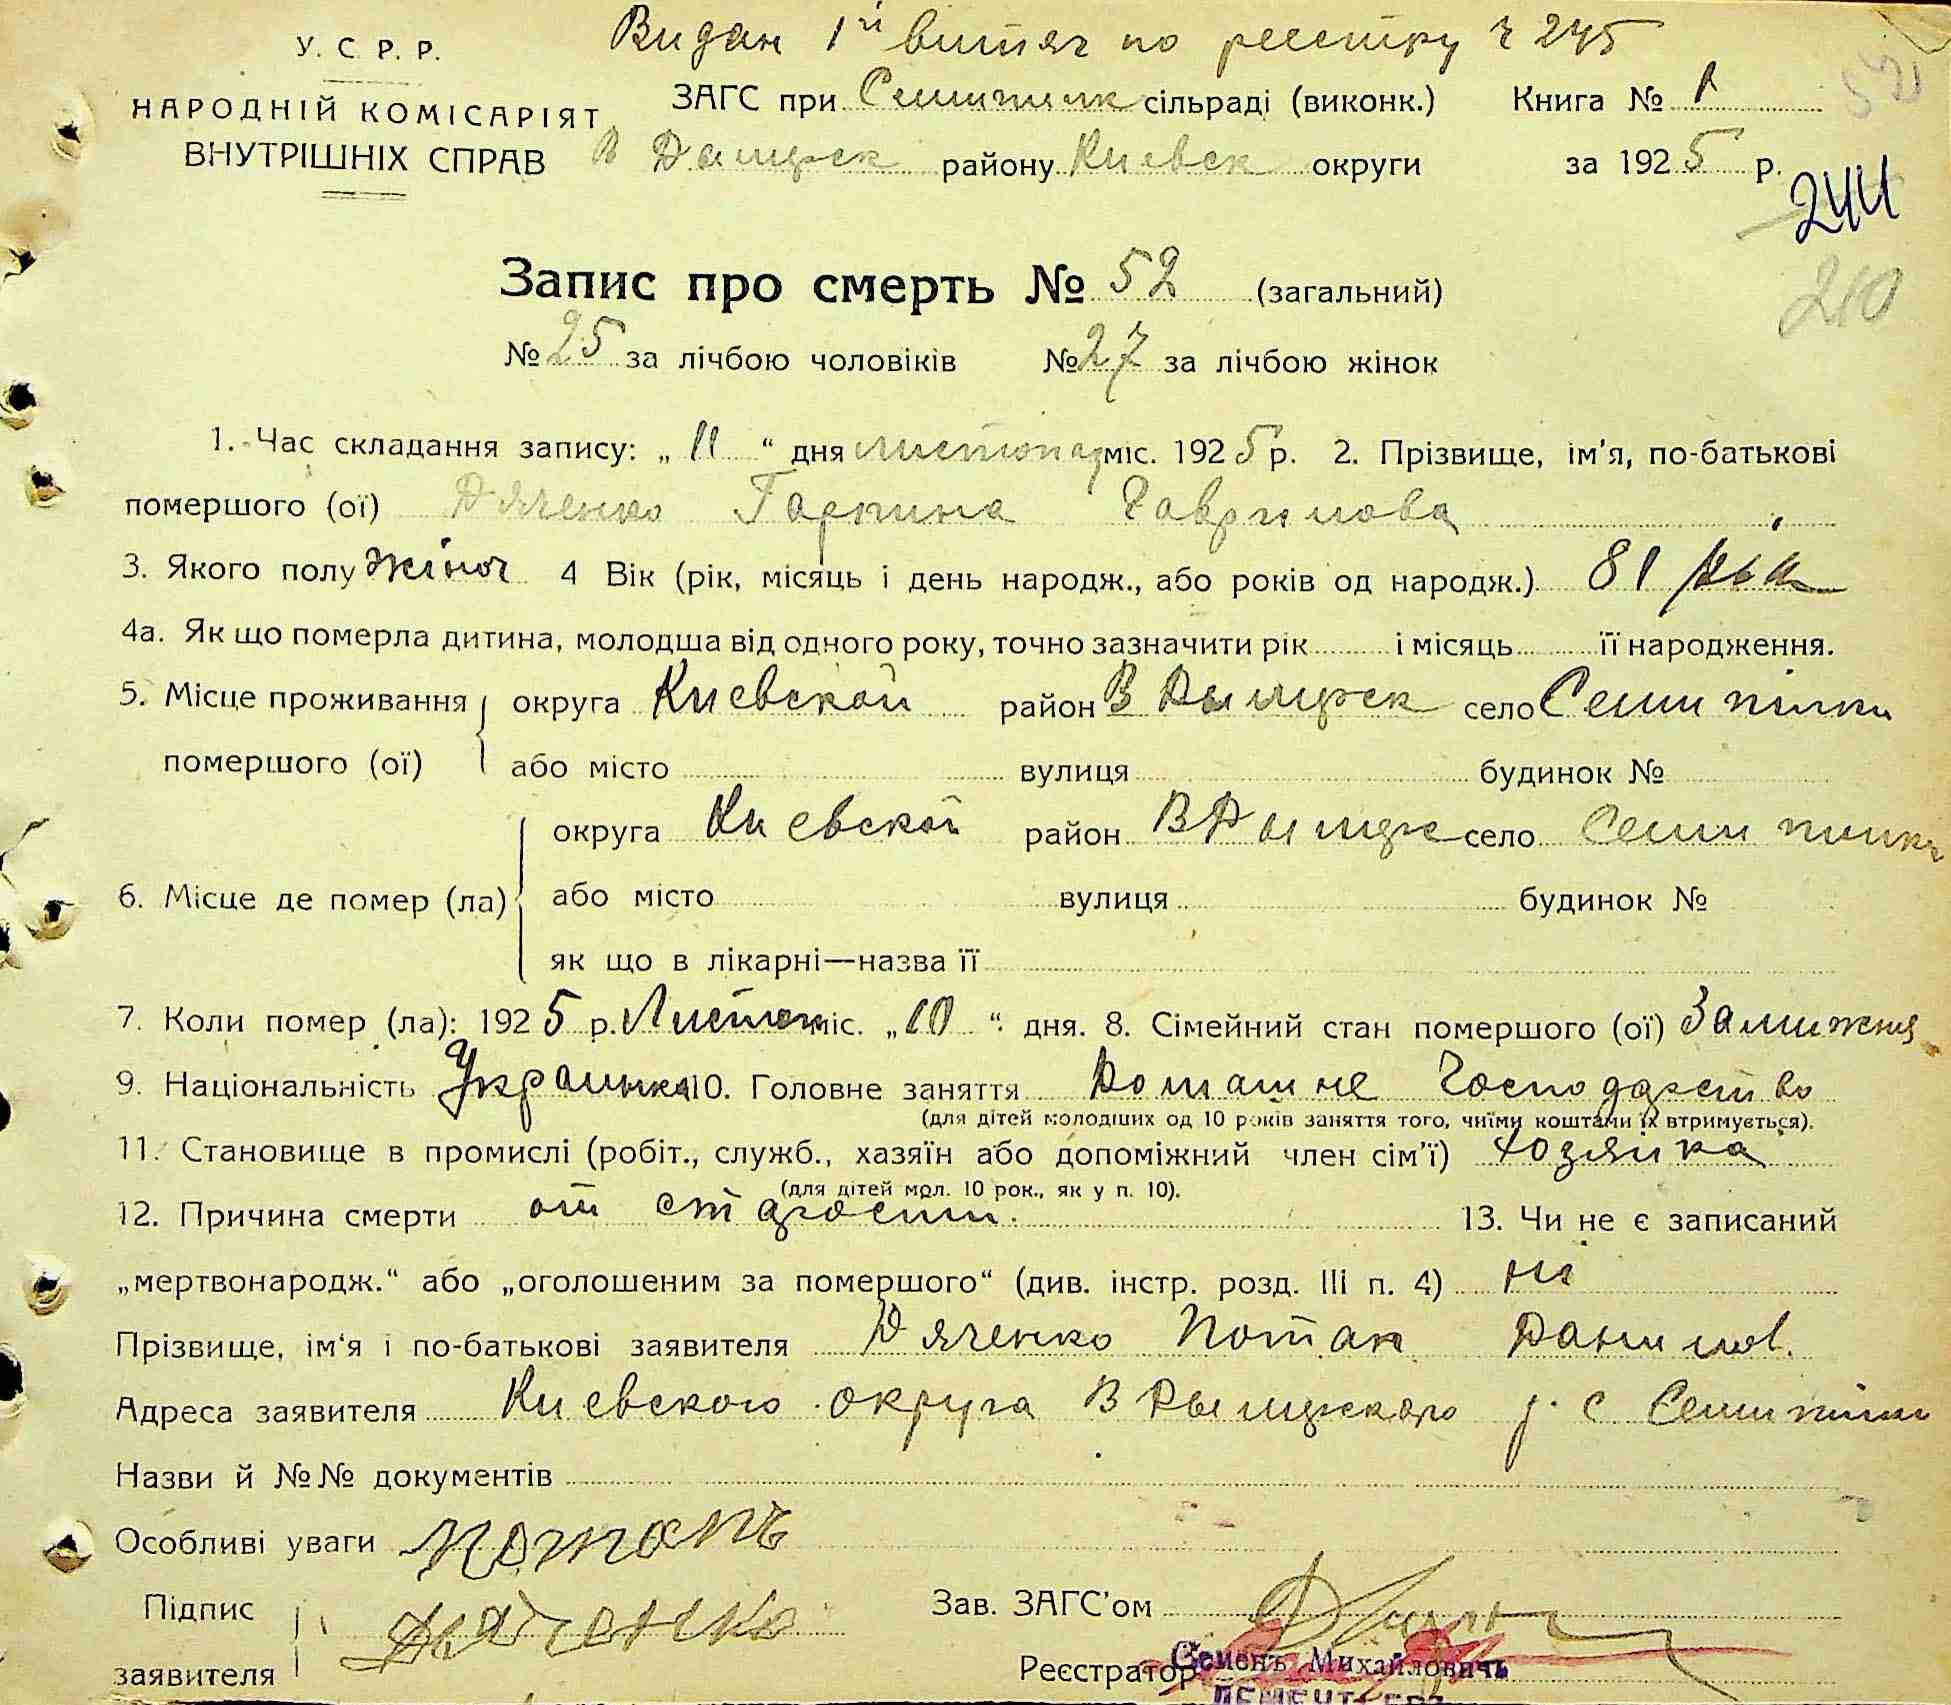 Видан 1й витяг по реестру ч 245
У. С. Р. Р.
НАРОДНІЙ КОМІСАРІЯТ
ВНУТРІШНІХ СПРАВ
ЗАГС при Семипилк сільраді (виконк.) Книга № 1
В Дымерск району Киевск округи за 1925 р.
244
210
Запис про смерть № 52 (загальний)
№ 25 за лічбою чоловіків № 27 за лічбою жінок
1. Час складання запису: „ 11 “ дня листопад міс. 1925 р. 2. Прізвище, ім'я, по-батькові
помершого (ої) Дяченко Гарпина Гаврилова
3. Якого полу жіноч 4 Вік (рік, місяць і день народж., або років од народж.) 81
4а. Як що померла дитина, молодша від одного року, точно зазначити рік і місяць її народження.
5. Місце проживання округа Киевской район В Дымерск село Семипілки
помершого (ої) або місто вулиця будинок №
округа Киевской район В Дымерск село Семипилки
6. Місце де помер (ла) або місто вулиця будинок №
як що в лікарні—назва її
7. Коли помер (ла): 1925 р. Листопад міс. „ 10 “ дня. 8. Сімейний стан помершого (ої) Замижня
9. Національність Украинка 10. Головне заняття Домашне Господарство
(для дітей молодших од 10 років заняття того, чиїми коштами їх втримується).
11. Становище в промислі (робіт., служб., хазяїн або допоміжний член сім'ї) хозяйка
(для дітей мол. 10 рок., як у п. 10).
12. Причина смерти от старости. 13. Чи не є записаний
„мертвонародж.“ або „оголошеним за помершого“ (див. інстр. розд. III п. 4) ні
Прізвище, ім'я і по-батькові заявителя Дяченко Потап Данилов.
Адреса заявителя Киевского округа В Дымерского р. с Семипілки
Назви й №№ документів
Особливі уваги Потапъ
Підпис заявителя Дяченко
Зав. ЗАГС'ом
Реєстратор Семенъ Михайловичъ